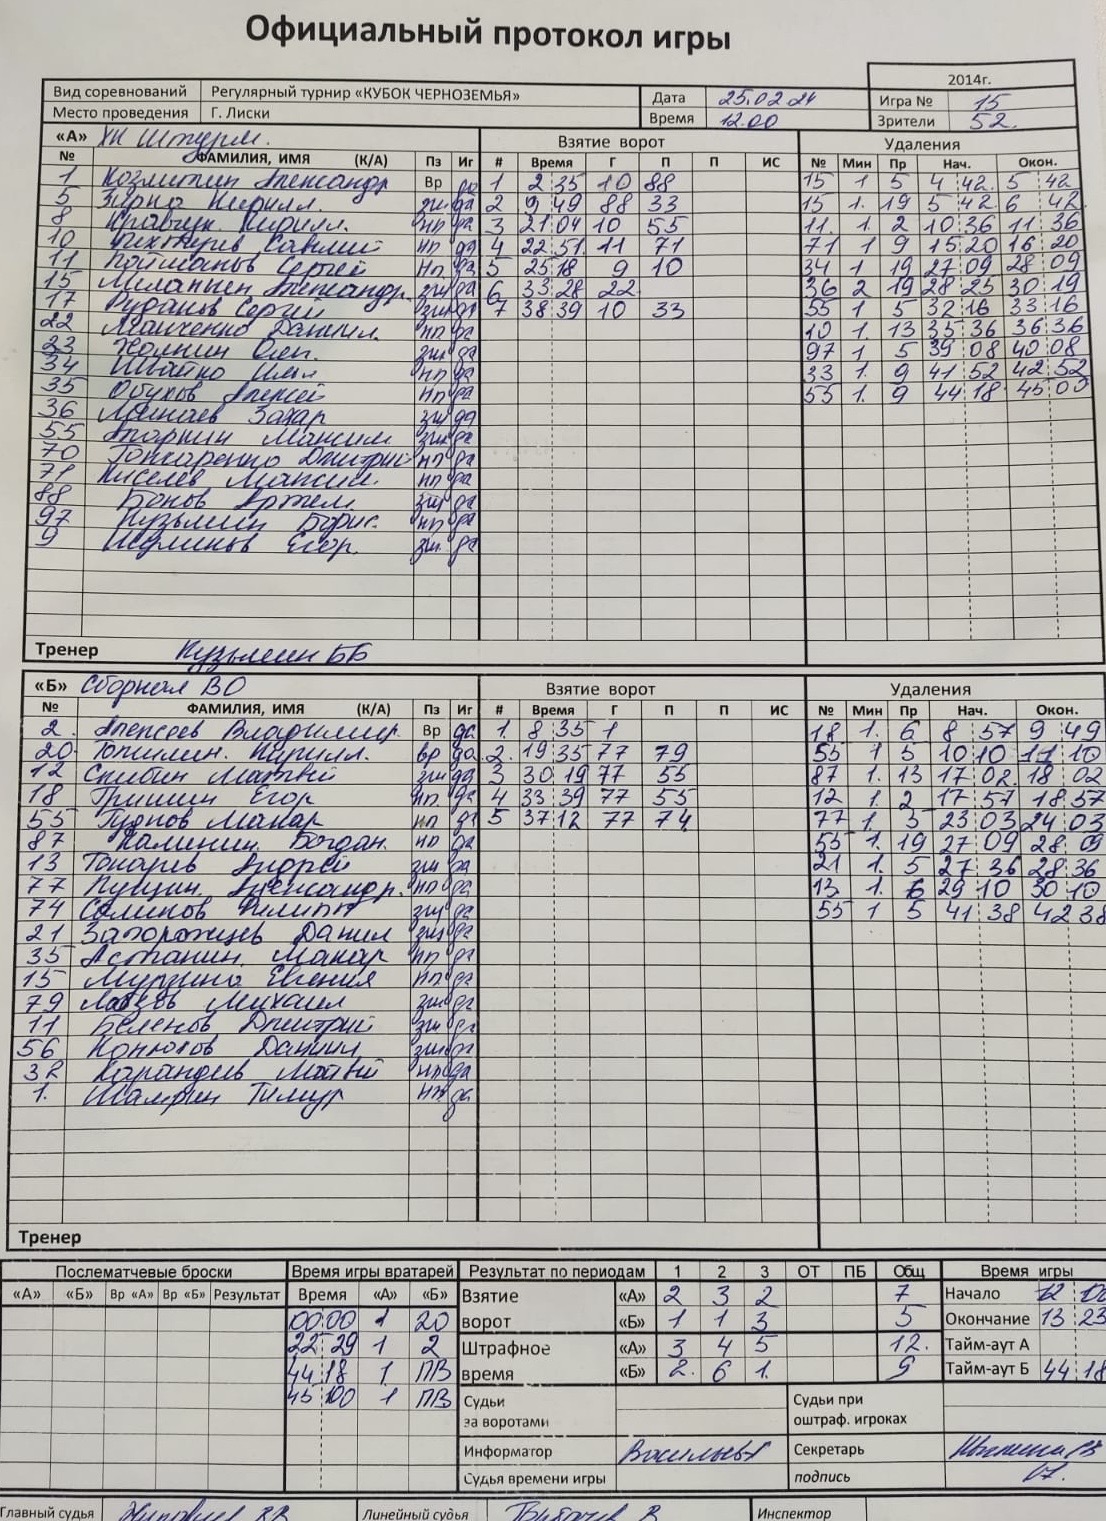 Официальный протокол игры
2014г.
Вид соревнований Регулярный турнир «КУБОК ЧЕРНОЗЕМЬЯ» Дата 25.02.24 Игра № 15
Место проведения Г. Лиски Время 12.00 Зрители 52.
«А» ХК Штурм. Взятие ворот Удаления
№ ФАМИЛИЯ, ИМЯ (К/А) Пз Иг # Время Г П П ИС № Мин Пр Нач. Окон.
1 Александр Вр да 1 2 35 10 88 15 1 5 4 42. 5 42
5 Кирилл. зщ да 2 9 49 88 33 15 1. 19 5 42 6 42
8 Кравчук Кирилл. нп да 3 21 04 10 55 11. 1. 2 10 36 11 36
10 нп да 4 22 51 11 71 71 1 9 15 20 16 20
11 Сергей нп да 5 25 18 9 10 34 1 19 27 09 28 09
15 Александр. зщ да 6 33 28 22 36 2 19 28 25 30 19
17 Сергей зщ да 7 38 39 10 33 55 1 5 32 16 33 16
22 Даниил. нп да 10 1. 13 35 36 36 36
23 Олег. зщ да 97 1 5 39 08 40 08
34 Швайко Илья нп да 33 1. 9 41 52 42 52
35 Обухов Алексей нп да 55 1. 9 44 18 45 00
36 Захар зщ да
55 Максим зщ да
70 Гончаренко Дмитрий нп да
71 Киселев Максим. нп да
88 Боков Артем. зщ да
97 Кузьмин Борис. нп да
9 Егор. зщ. да
Тренер Кузьмин ББ
«Б» Сборная ВО Взятие ворот Удаления
№ ФАМИЛИЯ, ИМЯ (К/А) Пз Иг # Время Г П П ИС № Мин Пр Нач. Окон.
2. Алексеев Владимир. Вр да 1. 8 35 1 18 1. 6 8 57 9 49
20. Топилин. Кирилл. вр да 2. 19 35 77 79 55 1 5 10 10 11 10
12 Скибин Матвей зщ да 3 30 19 77 55 87 1. 13 17 02. 18 02
18 Гришин Егор нп. да 4 33 39 77 55 12 1. 2 17 57 18 57
55 Макар нп да 5 37 12 77 74 77 1. 5 23 03 24 03
87 Калинин. Богдан. нп да 55 1. 19 27 09 28 09
13 Токарев Андрей зщ да 21 1. 5 27 36 28 36
77 Александр. нп да 13 1. 6 29 10 30 10
74 Филипп зщ да 55 1 5 41 38 42 38
21 Запорожцев Данил зщ да
35 Астанин. Макар нп да
15 Мурзина Евгения нп да
79 Михаил зщ да
11 Беленов Дмитрий зщ да
56 Конюхов Даниил зщ да
32 Карандеев Матвей нп да
1. Шамрин Тимур нп да
Тренер
Послематчевые броски Время игры вратарей Результат по периодам 1 2 3 ОТ ПБ Общ Время игры
«А» «Б» Вр «А» Вр «Б» Результат Время «А» «Б» Взятие «А» 2 3 2 7 Начало 12 00
00 00 1 20 ворот «Б» 1 1 3 5 Окончание 13 23
22 29 1 2 Штрафное «А» 3 4 5 12. Тайм-аут А
44 18 1. ПВ время «Б» 2. 6 1. 9 Тайм-аут Б 44 18
45 00 1 ПВ Судьи за воротами Судьи при оштраф. игроках
Информатор Васильева Секретарь
Судья времени игры подпись
Главный судья Линейный судья Инспектор